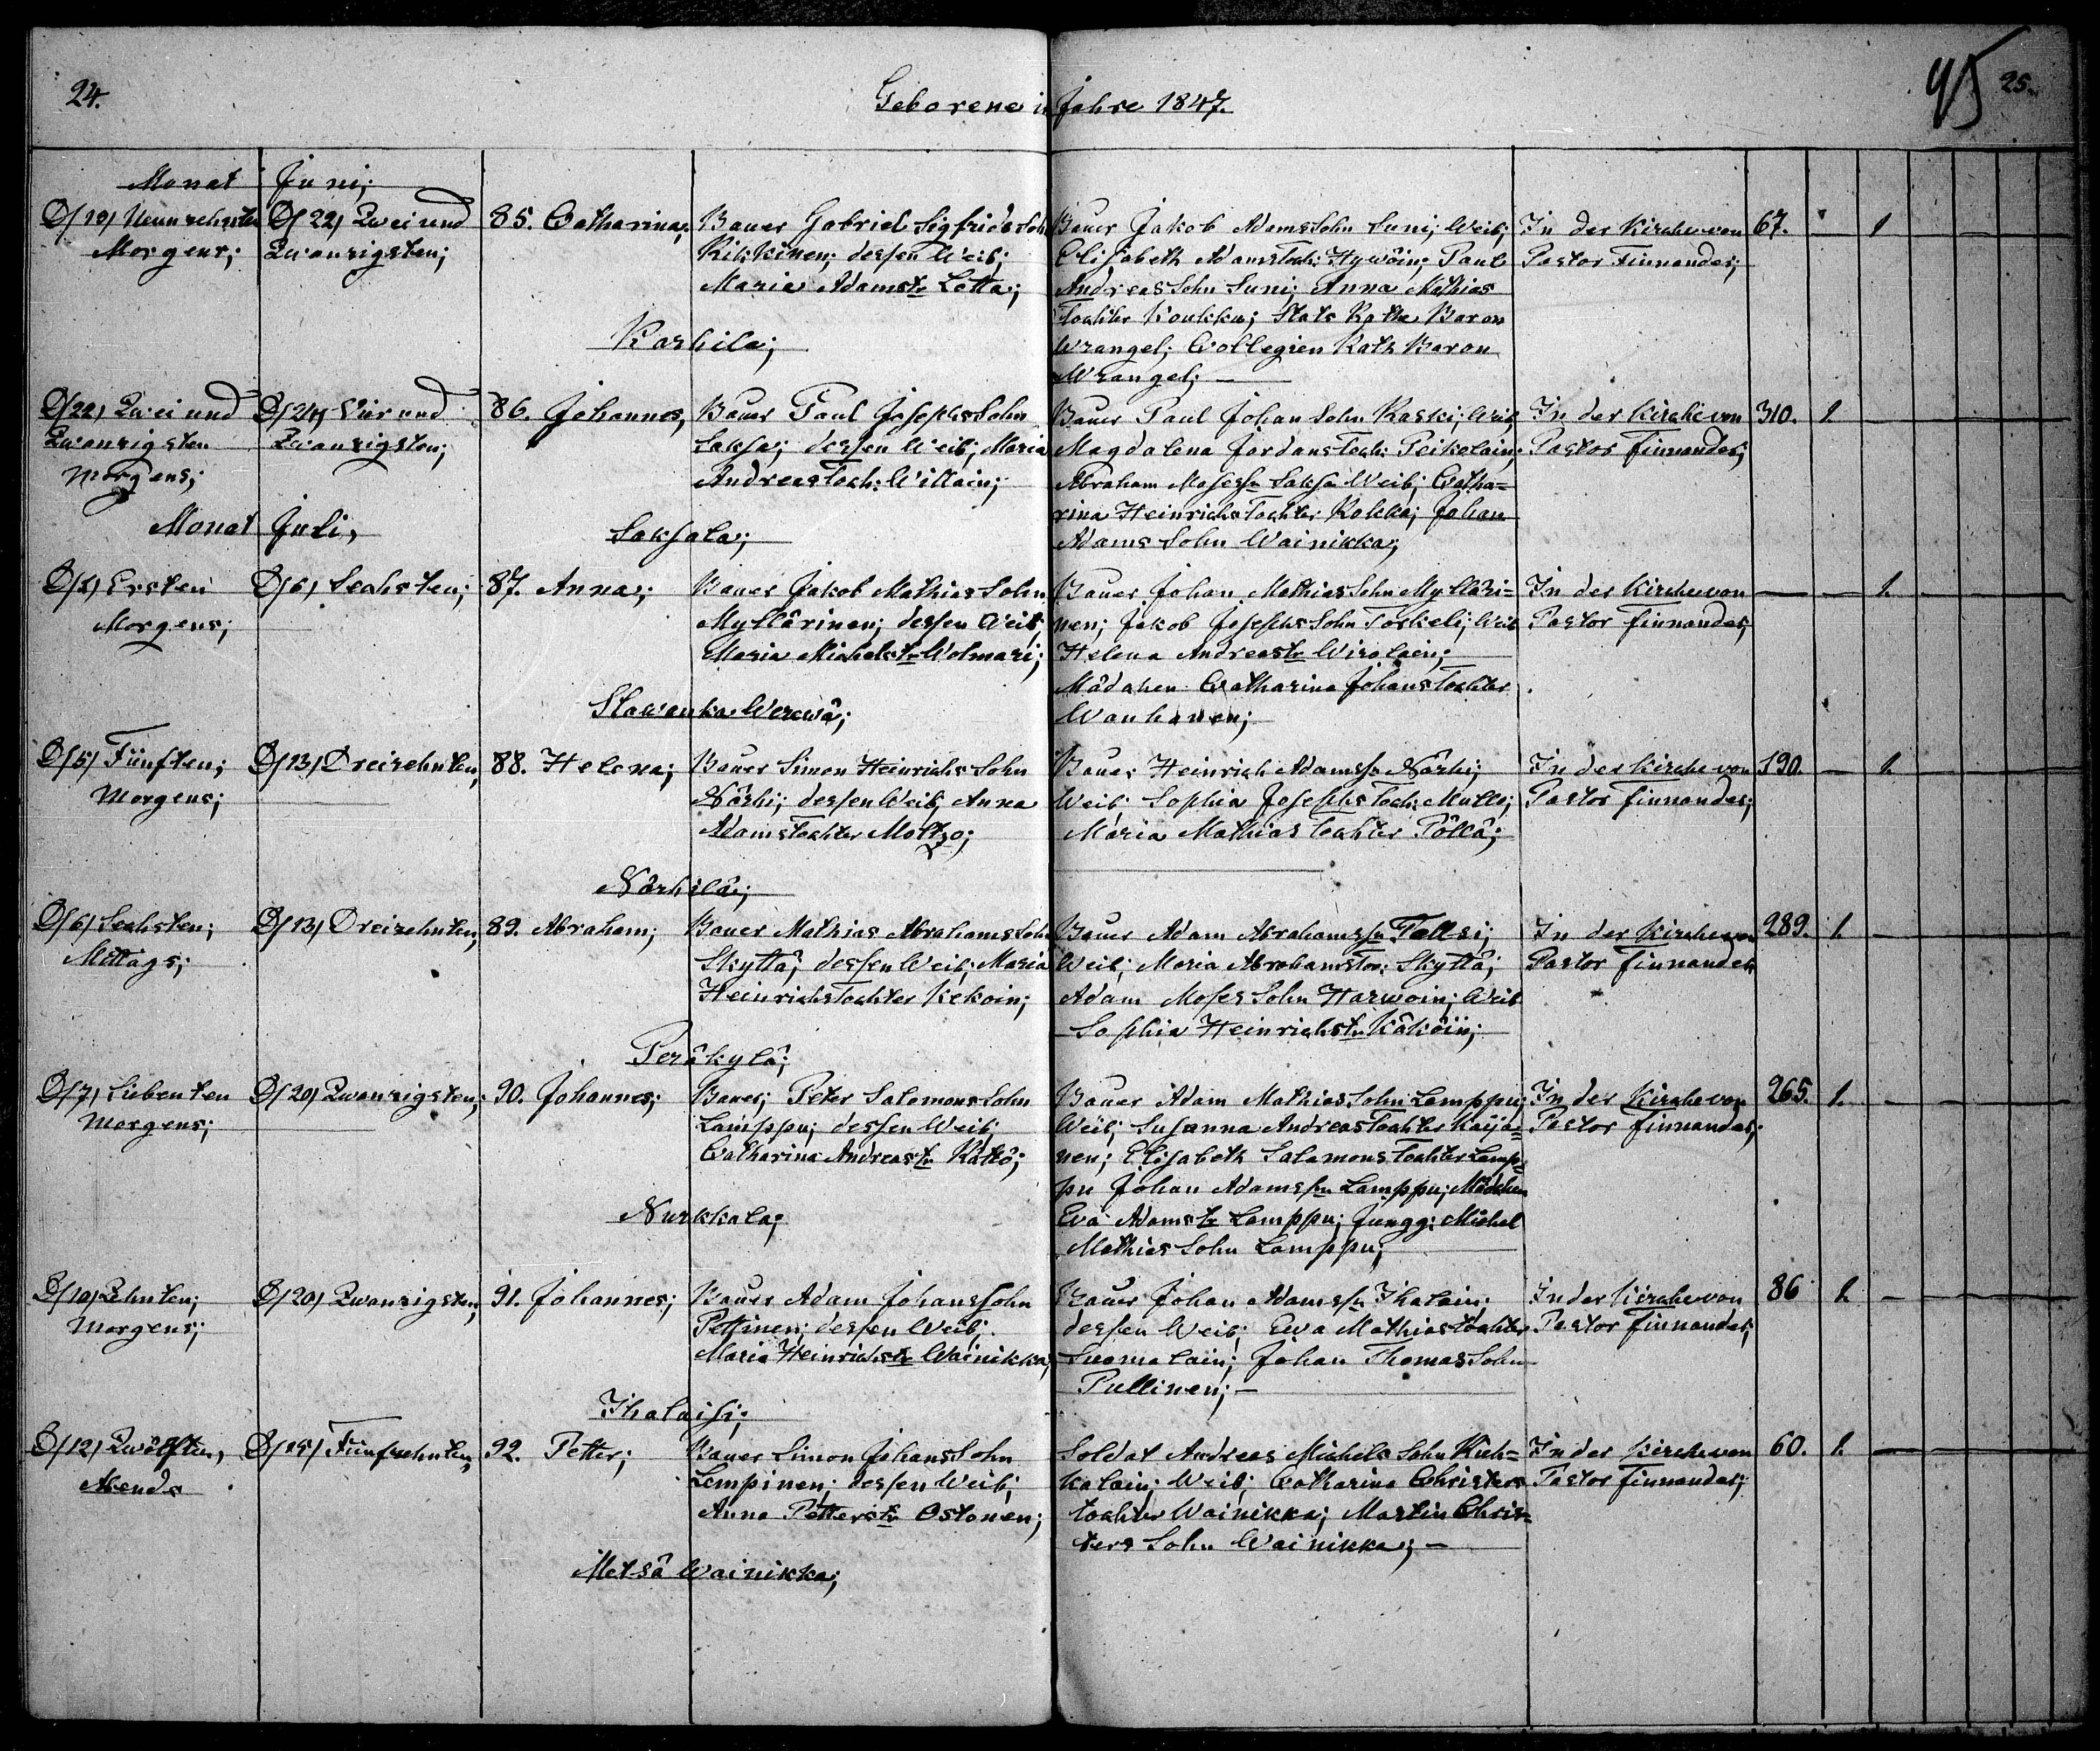 24.
Geborene i Jahre 1847.
45 25.
Monat Juni;
D/19/ Neunzehnten D/22/ Zwei und 85. Catharina; Bauer Gabriel Sigfrids Soh Bauer Jakob Adams Sohn Suni; Weib; In der Kirche von 67. — 1
Morgens; Zwanzigsten; Kikkinen; dessen Weib; Elisabeth Adams Toch: Hywöin; Paul Pastor Finnander;
Maria Adamstr Lotta; Andreas Sohn Suni; Anna Mathias
Tochter Koukka; Stats Rathe Baron
Korkila; Wrangel; Collegien Rath Baron
Wrangel; —
D/22/ Zwei und D/24/ Vier und 86. Johannes, Bauer Paul Josephs Sohn Bauer Paul Johan Sohn Raski; Weib In der Kirche von 310. 1. —
Zwanzigsten Zwanzigsten; Saksa; dessen Weib; Maria Magdalena Jordans Toch: Peikolain; Pastor Finnander;
Morgens; Andreas Toch: Willain; Abraham Moses Sn Saksa Weib; Catha=
Monat Juli, Saksala; rina Heinrichs Tochter Kokka; Johan
Adams Sohn Wainikka;
D/1/ Ersten D/6/ Sechsten; 87. Anna; Bauer Jakob Mathias Sohn Bauer Johan Mathias Sohn Mylläri= In der Kirche von — — 1.
Morgens; Myllärinen; dessen Weib; nen; Jakob Josephs Sohn Torkeli; Weib Pastor Finnander;
Maria Michelstr Wolmari; Helena Andreastr Wirolain;
Mädchen Catharina Johans Tochter
Slawenka Werewä; Wanhanen;
D/5/ Fünften; D/13/ Dreizehnten, 88. Helena; Bauer Simon Heinrichs Sohn Bauer Heinrich Adams Sn Närhi; In der Kirche von 190. — 1.
Morgens; Närhi; dessen Weib; Anna Weib; Sophia Josephs Toch: Mullo; Pastor Finnander;
Adams Tochter Moltzo; Maria Mathias Tochter Pöllä;
Närhilä;
D/6/ Sechsten; D/13/ Dreizehnten, 89. Abraham; Bauer Mathias Abrahams Sohn Bauer Adam Abrahams Sn Tallsi; In der Kirche von 289. 1. —
Mittags; Skyttä; dessen Weib; Maria Weib; Maria Abrahams To: Skyttä; Pastor Finnander
Heinrichs Tochter Kekoin; Adam Moses Sohn Harwoin; Weib
Sophia Heinrichstr Käköin;
Peräkylä;
D/7/ Siebenten D/20/ Zwanzigsten; 90. Johannes; Bauer; Peter Salomons Sohn Bauer Adam Mathias Sohn Lamppu; In der Kirche von 265. 1. —
Morgens; Lamppu; dessen Weib; Weib; Susanna Andreas Tochter Kaija= Pastor Finnander;
Catharina Andreastr Kattö; nen; Elisabeth Salomons Tochter Lamp=
pu Johan Adams Sn Lamppu; Mädchen
Nurkkala; Eva Adamstr Lamppu; Jungg: Michel
Mathias Sohn Lamppu;
D/10/ Zehnten; D/20/ Zwanzigsten, 91. Johannes; Bauer Adam Johans Sohn Bauer Johan Adams Sn Ihalain; In der Kirche von 86 1. —
Morgens; Pettinen; dessen Weib; dessen Weib; Ewa Mathias Tochter Pastor Finnander;
Maria Heinrichstr Wainikka, Suomalain; Johan Thomas Sohn
Pullinen; —
Ihalaisi;
D/12/ Zwölften, D/15/ Fünfzehnten, 92. Petter; Bauer Simon Johans Sohn Soldat Andreas Michels Sohn Kuh= In der Kirche von 60. 1. —
Abends Lempinen; dessen Weib; kalain; Weib; Catharina Christers Pastor Finnander;
Anna Petterstr Ostonen; tochter Wainikka; Martin Chris=
ters Sohn Wainikka; —
Metsä Wainikka;